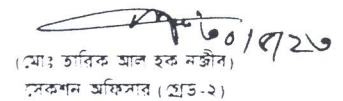 ৩০/৫/২৩
(মোঃ তারিক আল হক নজীব)
সেকশন অফিসার (গ্রেড-২)